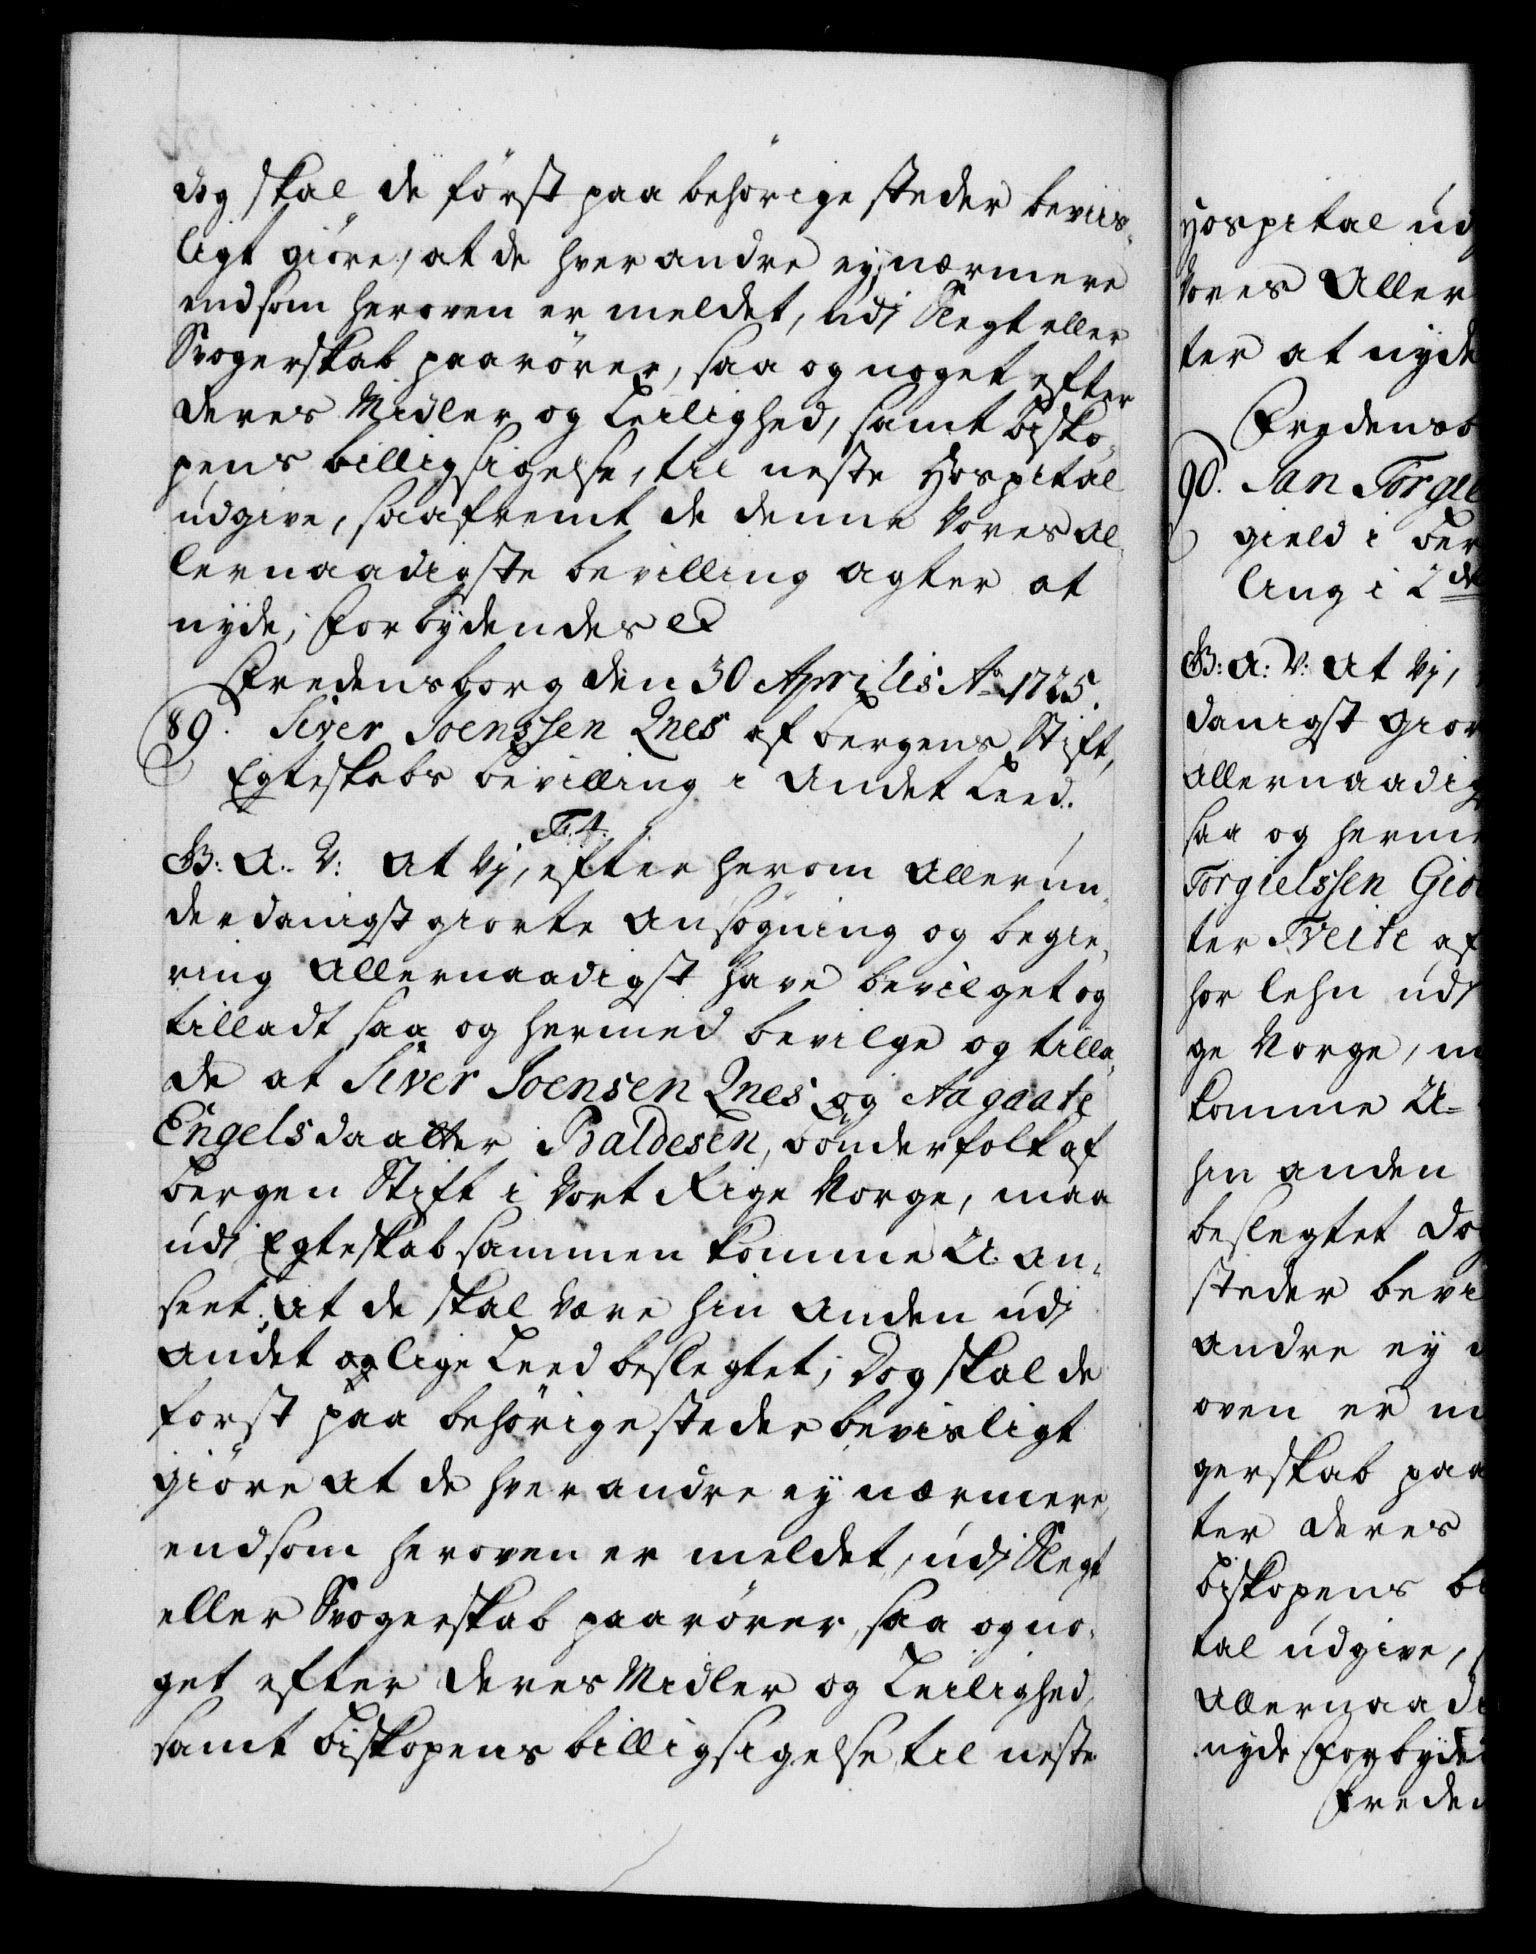 dog skal de först paa behörige steder beviis-
ligt giöre, at de hverandre ey nærmere
end som heroven er meldet, udi Slegt eller
Svogerskab paarörer, saa og noget efter
deres Midler og Leilighed, samt Bisko-
pens billigsigelse, til neste Hospital
udgive, saafremt de denne Vores Al-
lernaadigste bevilling agter at
nyde; Forbydendes &
Fredensborg den 30 Aprilis Ao 1725.
89. Siver Joenssen Qnes af Bergens Stift,
Egteskabs bevilling i Andet Leed.
F. 4.
G: A: V: At Vj, efter herom Allerun-
derdanigst giorte Ansøgning og begie-
ring Allernaadigst have bevilget og
tilladt saa og hermed bevilge og tilla-
de at Siver Joensen Qnes og Aagaate
Engelsdaatter Baldesen, bönderfolk af
Bergen Stift i Vort Rige Norge, maa
udi Egteskab sammen komme U-an-
seet at de skal være hin Anden udi
andet og lige Leed beslegtet; Dog skal de
först paa behörige steder bevisligt
giöre at de hverandre ey nærmere,
end som heroven er meldet, udi Slegt
eller Svogerskab paarörer, saa og no-
get efter deres Midler og Leilighed,
samt Biskopens billigsigelse, til neste
Hospital ud
Vores Aller
ter at nyde
Fredensb
90. Jan Torgie
gield i Ber
ling i 2de
G: A: V: At Vj,
danigst gior
Allernaadig
saa og herme
Torgielssen Gio
ter Tveite af
hor lehn udi
ge Norge, m
komme U-
hin anden
beslegtet Do
steder bevi
andre ey
oven er m
gerskab paa
ter deres
Biskopens bi
tal udgive,
Allernaadi
nyde Forbyde
Freden